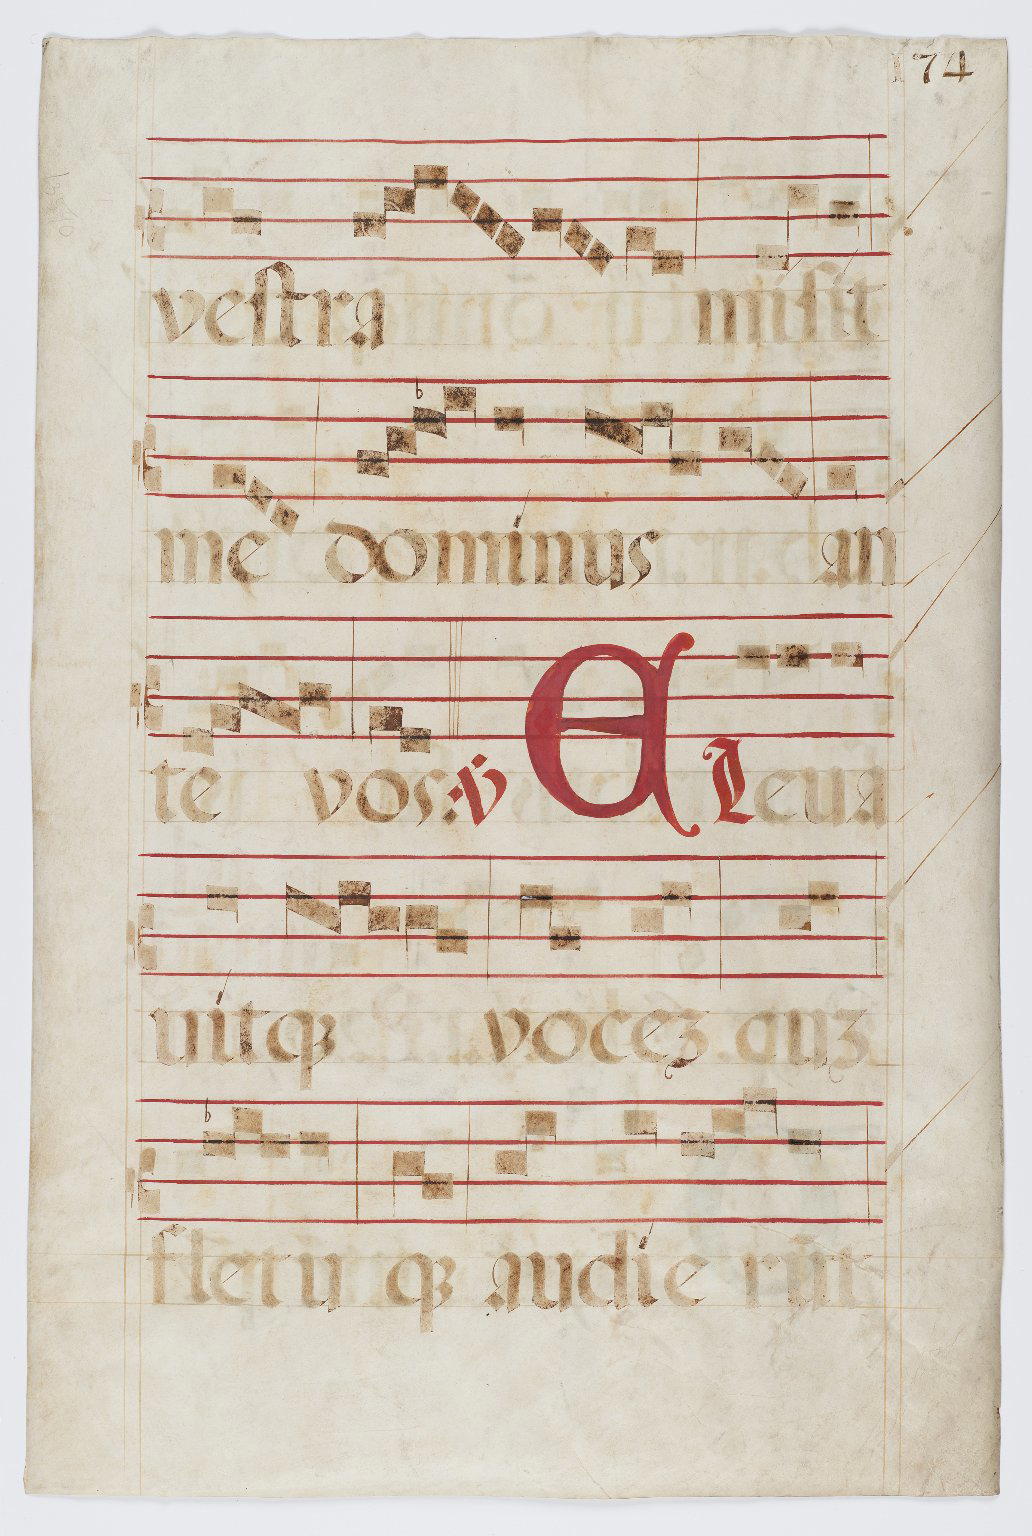 174
vestra misit
me dominus an
te vos: ℣ E Leua
uitqꝫ vocez cuz
fletu qꝫ audie rūt